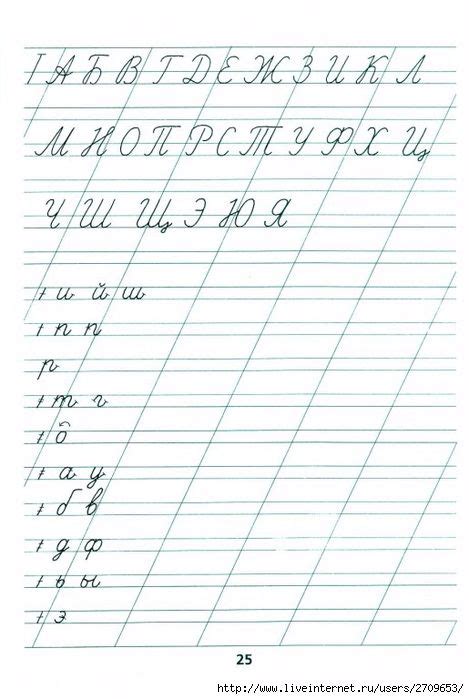 А Б В Г Д Е Ж З И К Л
М Н О П Р С Т У Ф Х Ц
Ч Ш Щ Э Ю Я
и й ш
п п
р
т г
о
а у
б в
д ф
ь ы
э
25
http://www.liveinternet.ru/users/2709653/